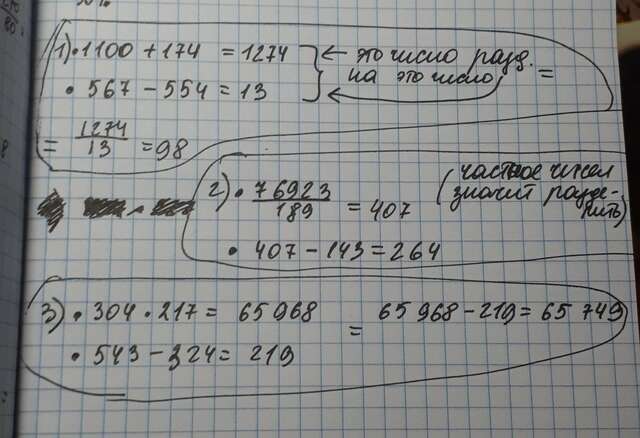 1) • 1100 + 174 = 1274 ← это число разд.
на это число =
• 567 − 554 = 13
= 1274/13 = 98
2) • 76923/189 = 407 (частное чисел
значит разде-
лить)
• 407 − 143 = 264
3) • 304 · 217 = 65968
= 65968 − 219 = 65749
• 543 − 324 = 219